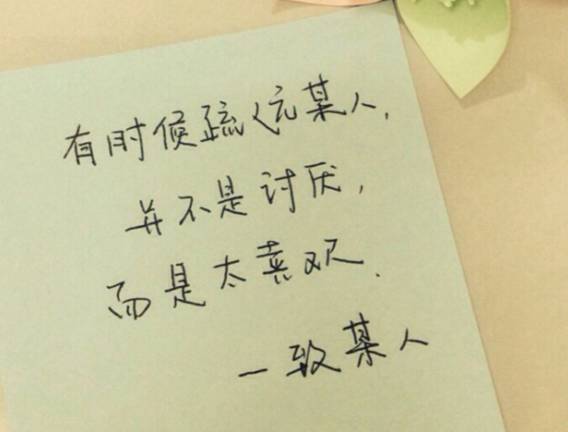 有时候疏远某人,
并不是讨厌,
而是太喜欢.
一致某人